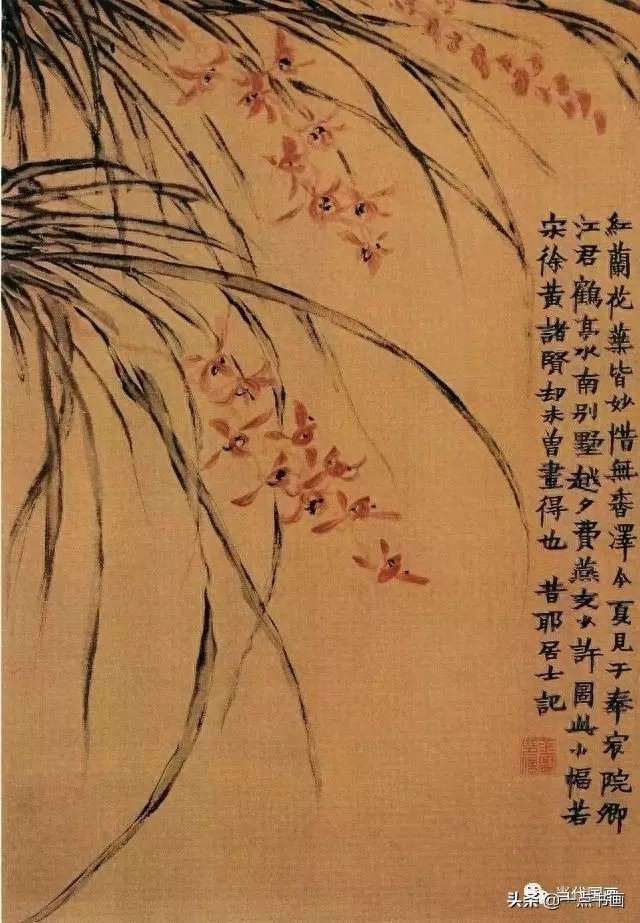 紅蘭花葉皆妙惜無香澤今夏見于奉宸院卿
江君鶴亭水南別墅越夕費燕支少許圖此小幅若
宋徐黃諸賢却未曾畫得也 昔耶居士記
当代国画
头条@一点书画